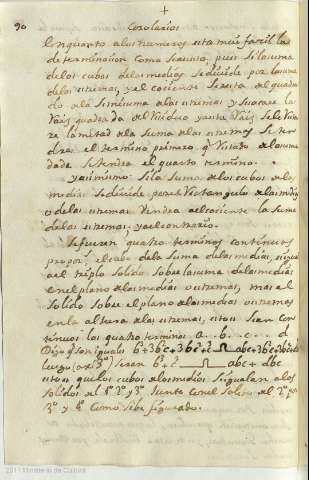 90
+
Corolarios
En quanto a los numeros esta mui facil la
determinacion como se acusta, pues si la suma
de los cubos de las medias se divide por la suma
de las estremas, y el cociente se resta del quadra
do de la suma de las estremas y se sacare la
Raiz quadrada del residuo y esta Raiz se le
de la mitad de la suma de los estremos se ten
dra el termino primero q restado de la suma
dada se tendra el quarto termino.
y asimismo si la suma de los cubos de las
medias se divide por el rectangulo de las medias
o de las estremas vendra al cociente la suma
de las estremas, y al contrario.
Si fueren quatro terminos continuos
propor. el cubo de la suma de las medias, sigual
a el triplo solido sobre la suma de las medias
en el plano de las medias o estremas, mas el
solido sobre el plano de las medias o estremas
en la altura de las estremas, estos sean con
tinuos los quatro terminos a... b... c... d
Digo q son iguales b³+3b²c+3bc²+c³ abc+3b²c+3bc²+dbc
luego seran b³+c³ abc+dbc
esto es, que los cubos de las medias se igualan a los
solidos del 1º 2º y 3º junto con el solido del 2º
3º y 4º como se ve figurado.
2011 Ministerio de Cultura